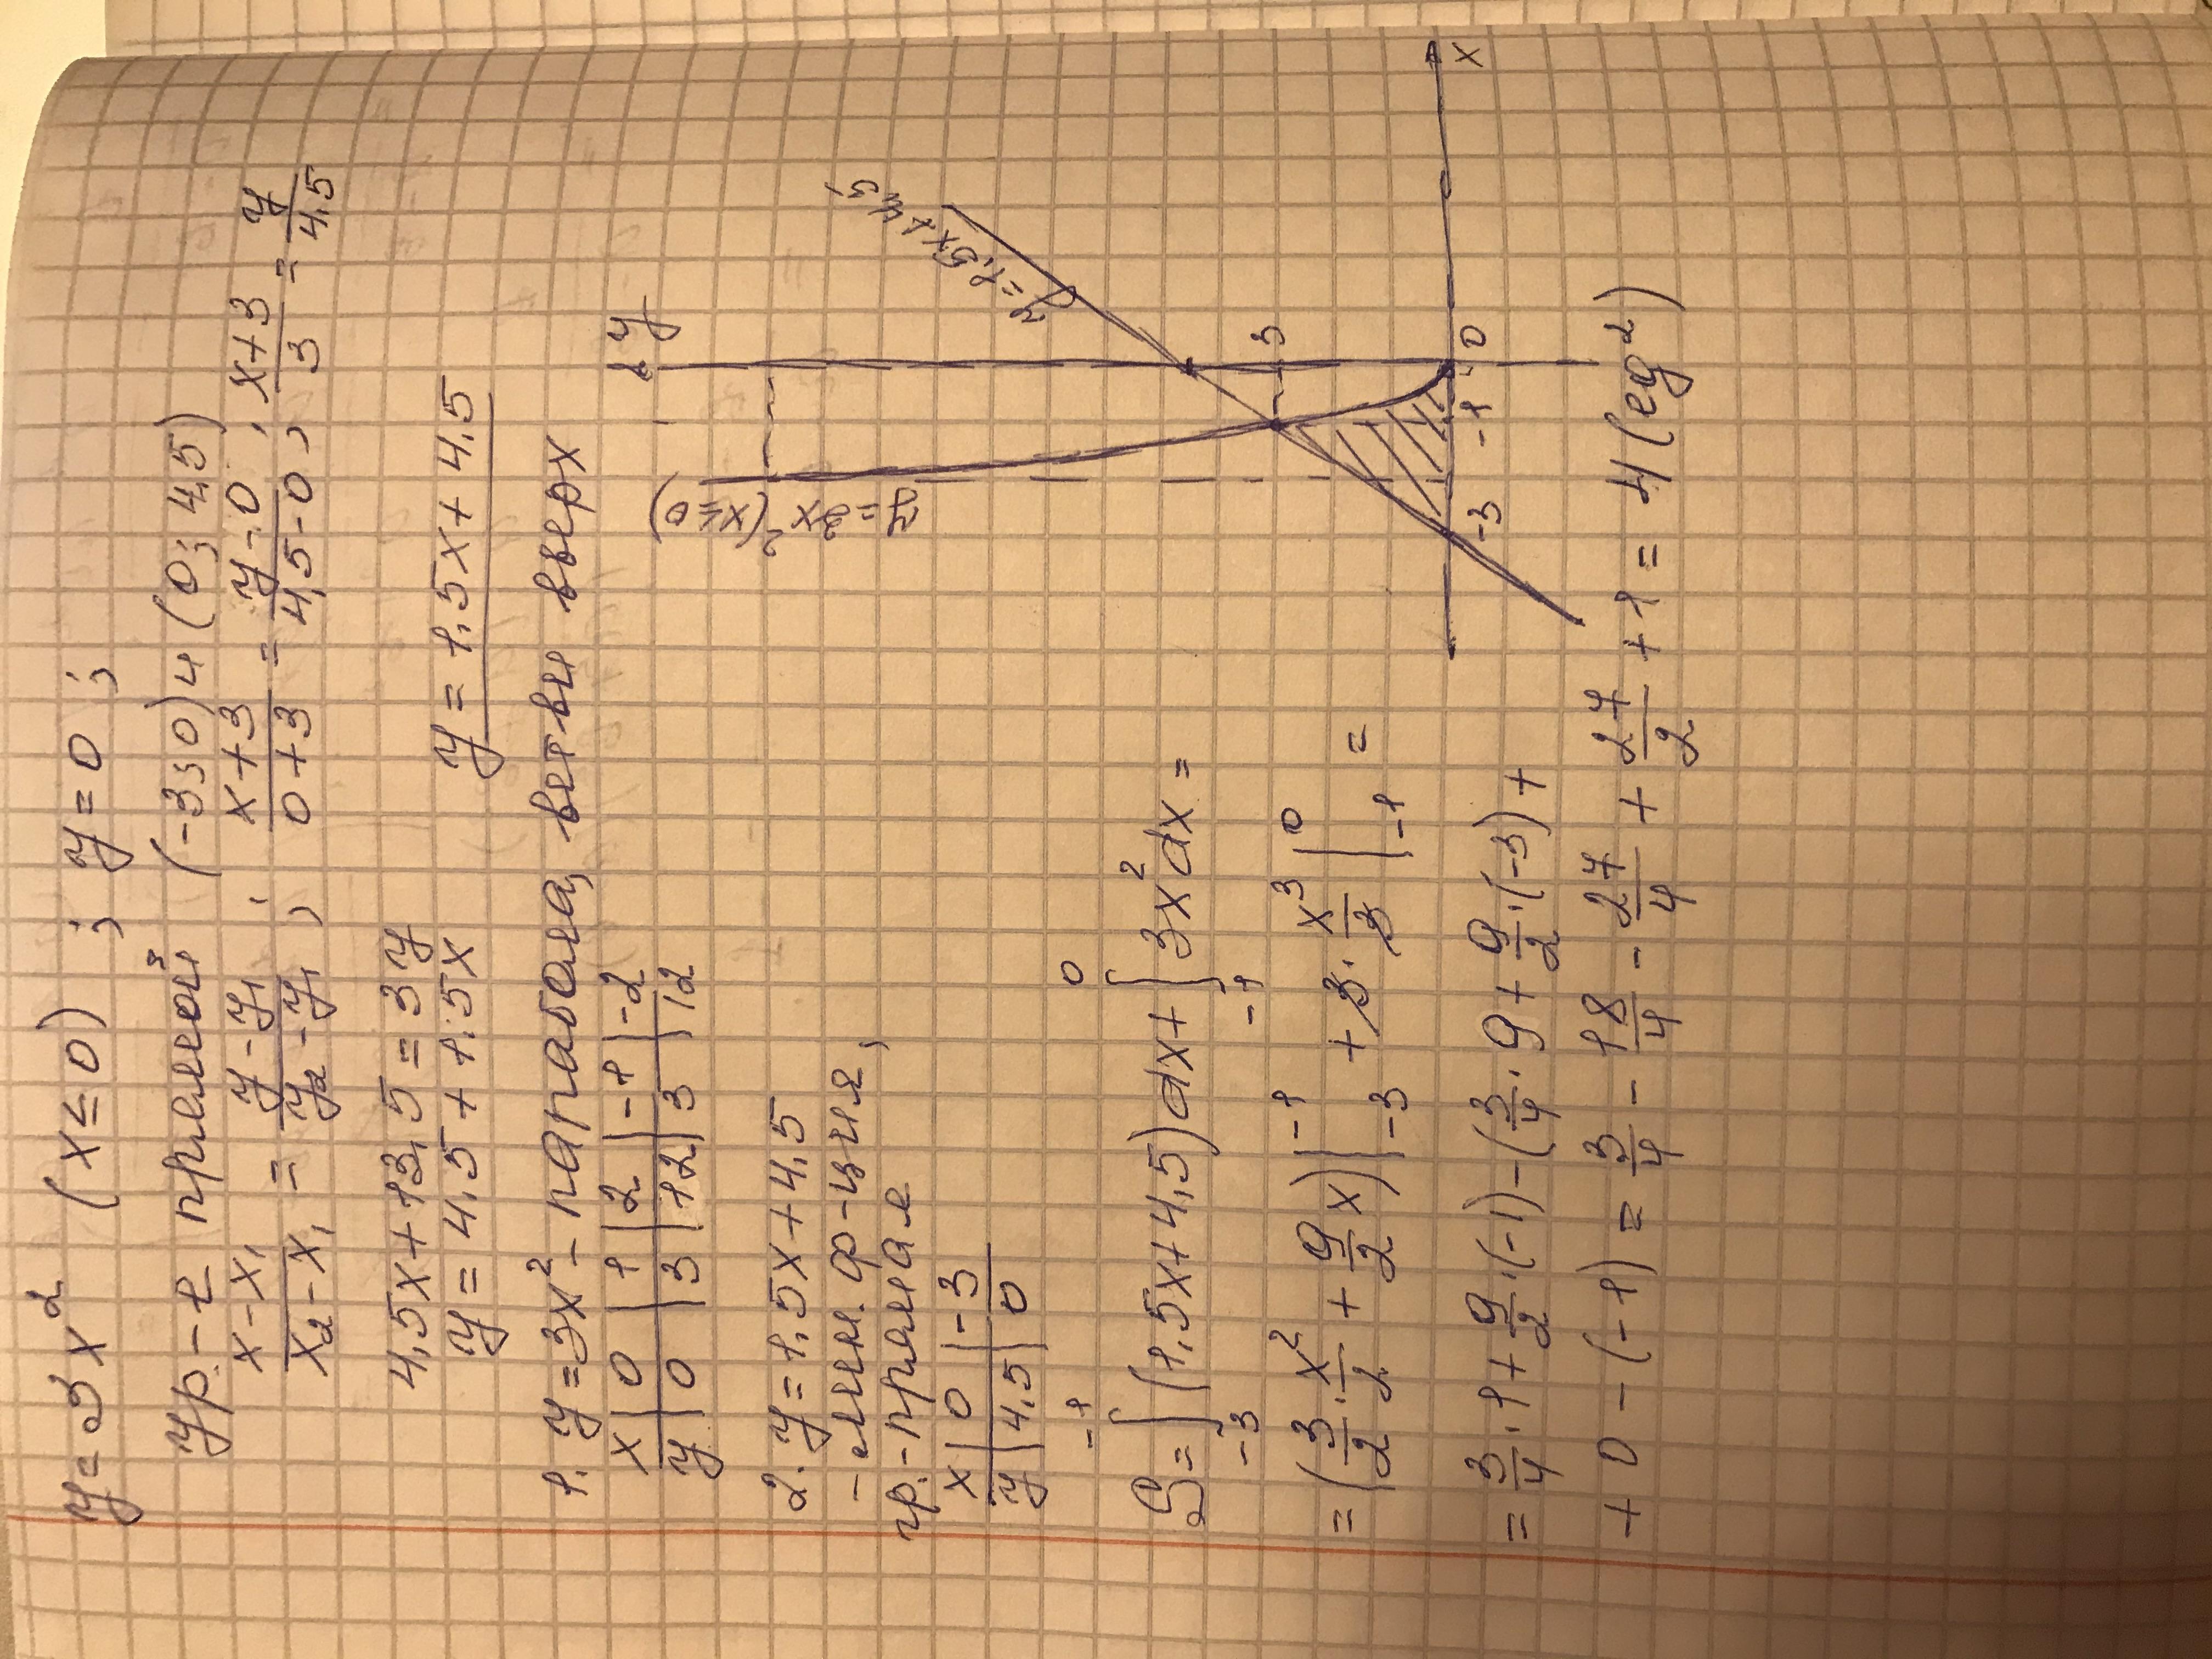 y=3x² (x≤0) ; y=0 ;
ур-е прямой (-3;0) и (0; 4,5)
(x-x₁)/(x₂-x₁) = (y-y₁)/(y₂-y₁) ; (x+3)/(0+3) = (y-0)/(4,5-0) ; (x+3)/3 = y/4,5
4,5x+13,5=3y
y=4,5+1,5x y=1,5x+4,5
1. y=3x² - парабола, ветви вверх
x | 0 | 1 | 2 | -1 | -2
y | 0 | 3 | 12 | 3 | 12
2. y=1,5x+4,5
- лин. ф-ция,
гр.-прямая
x | 0 | -3
y | 4,5 | 0
y
y=3x² (x≤0)
y=1,5x+4,5
3
-3 -1 0
x
S=∫₋₃⁻¹(1,5x+4,5)dx+∫₋₁⁰3x²dx=
=(3/2·x²/2+9/2x)|₋₃⁻¹+3·x³/3|₋₁⁰=
=3/4·1+9/2·(-1)-(3/4·9+9/2·(-3)+
+0-(-1)=3/4-18/4-27/4+27/2+1=4(ед²)